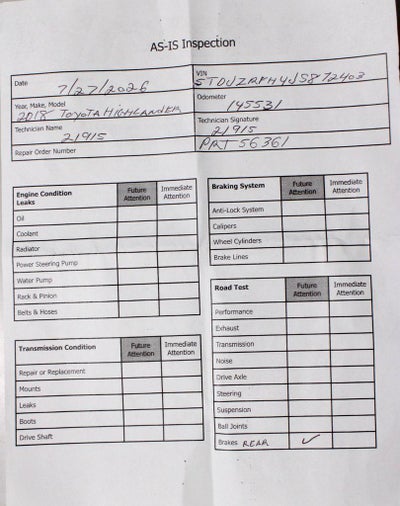 AS-IS Inspection
Date 7/27/2026
VIN 5TDJZRFH4JS872403
Year, Make, Model 2018 TOYOTA HIGHLANDER
Odometer 145531
Technician Name 21915
Technician Signature 21915
Repair Order Number
PRJ 56361
Engine Condition Future Attention Immediate Attention
Leaks
Oil
Coolant
Radiator
Power Steering Pump
Water Pump
Rack & Pinion
Belts & Hoses
Transmission Condition Future Attention Immediate Attention
Repair or Replacement
Mounts
Leaks
Boots
Drive Shaft
Braking System Future Attention Immediate Attention
Anti-Lock System
Calipers
Wheel Cylinders
Brake Lines
Road Test Future Attention Immediate Attention
Performance
Exhaust
Transmission
Noise
Drive Axle
Steering
Suspension
Ball Joints
Brakes REAR ✓